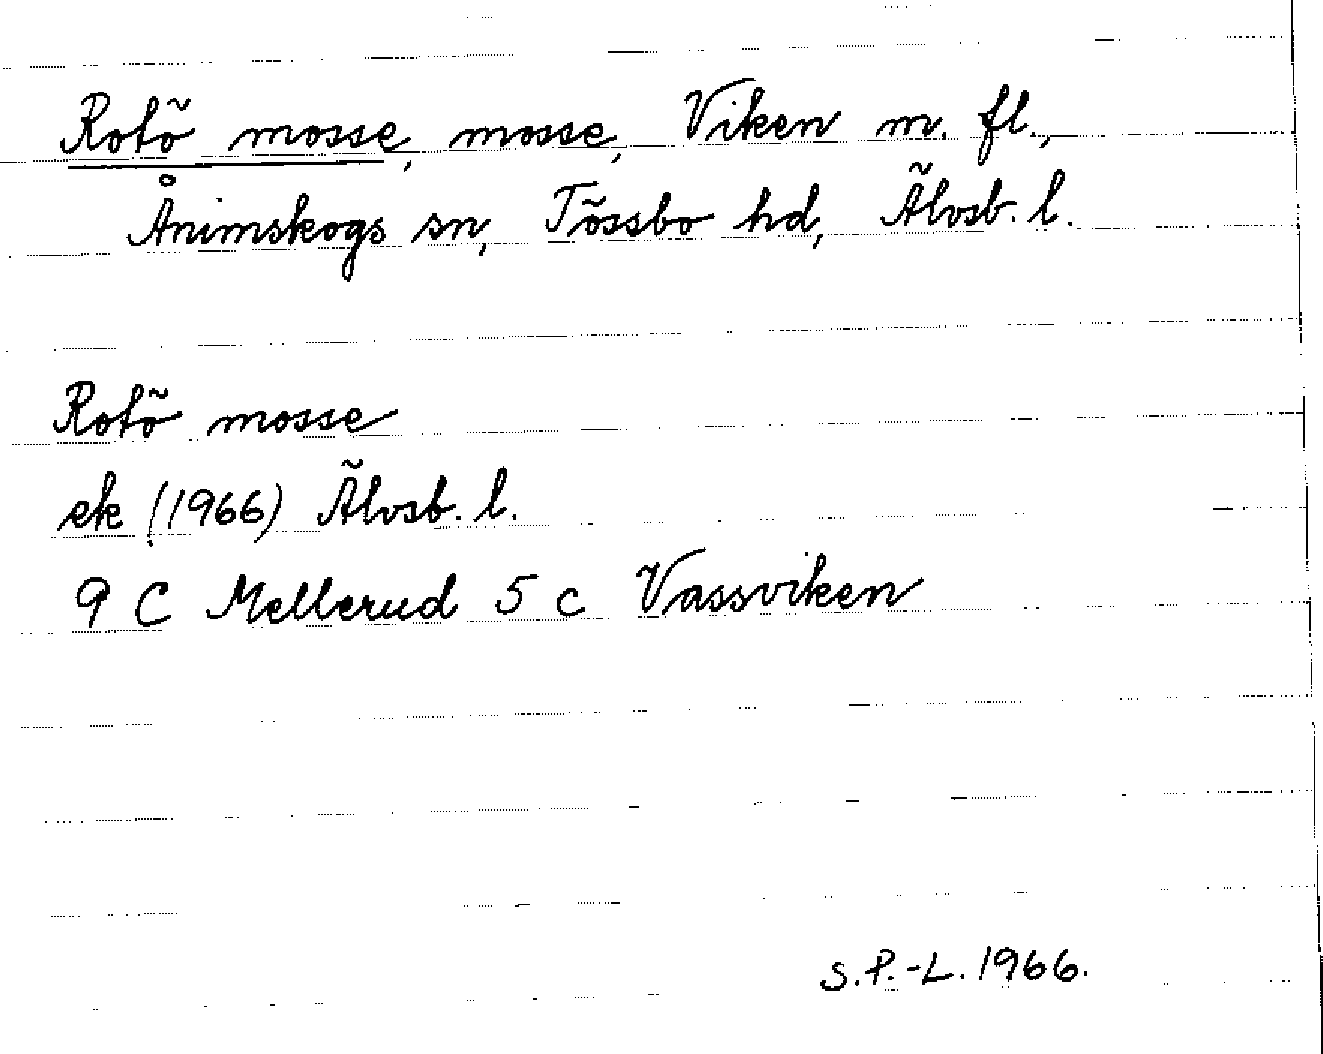 Rotö mosse, mosse, Viken m. fl.,
Ånimskogs sn, Tössbo hd, Älvsb. l.
Rotö mosse
ek (1966) Älvsb. l.
9 C Mellerud 5 c Vassviken
S.P.-L. 1966.